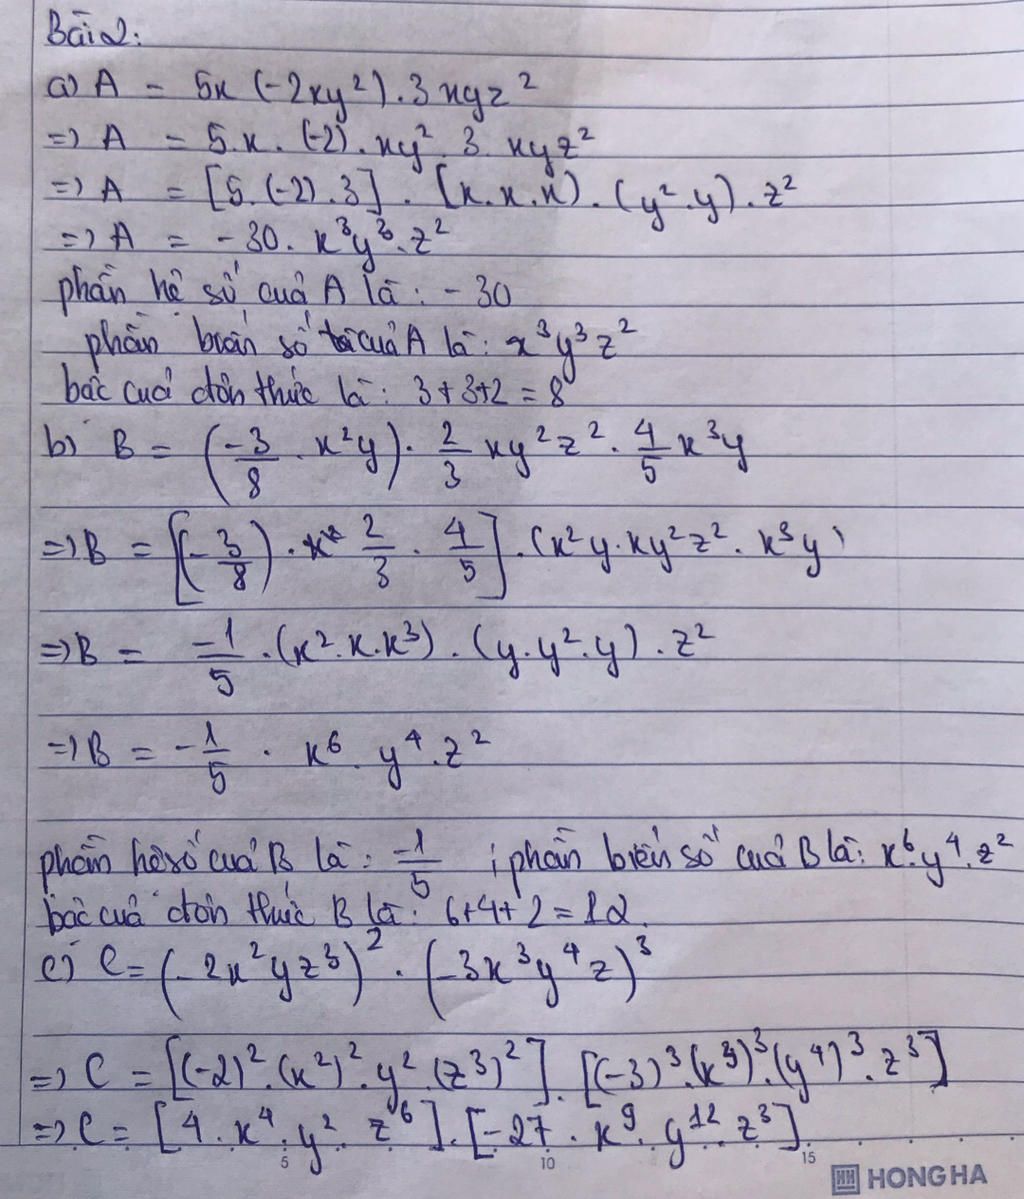 Bài 2:
a) A = 5x (-2xy²).3xyz²
=) A = 5.x.(-2).xy².3.xyz²
=) A = [5.(-2).3].(x.x.x).(y².y).z²
=) A = -30.x³y³.z²
phần hệ số của A là: -30
phần biến số của A là: x³y³z²
bậc của đơn thức là: 3+3+2=8
b) B = (-3/8 . x²y). 2/3 xy²z². 4/5 x³y
=) B = [(-3/8). 2/3 . 4/5].(x²y.xy²z².x³y)
=) B = -1/5 .(x².x.x³).(y.y².y).z²
=) B = -1/5 . x⁶.y⁴.z²
phần hệ số của B là: -1/5 ; phần biến số của B là: x⁶.y⁴.z²
bậc của đơn thức B là: 6+4+2=12.
c) C = (-2x²yz³)².(-3x³y⁴z)³
=) C = [(-2)².(x²)².y².(z³)²].[(-3)³.(x³)³.(y⁴)³.z³]
=) C = [4.x⁴.y².z⁶].[-27.x⁹.y¹².z³]
5 10 15
HH HONG HA